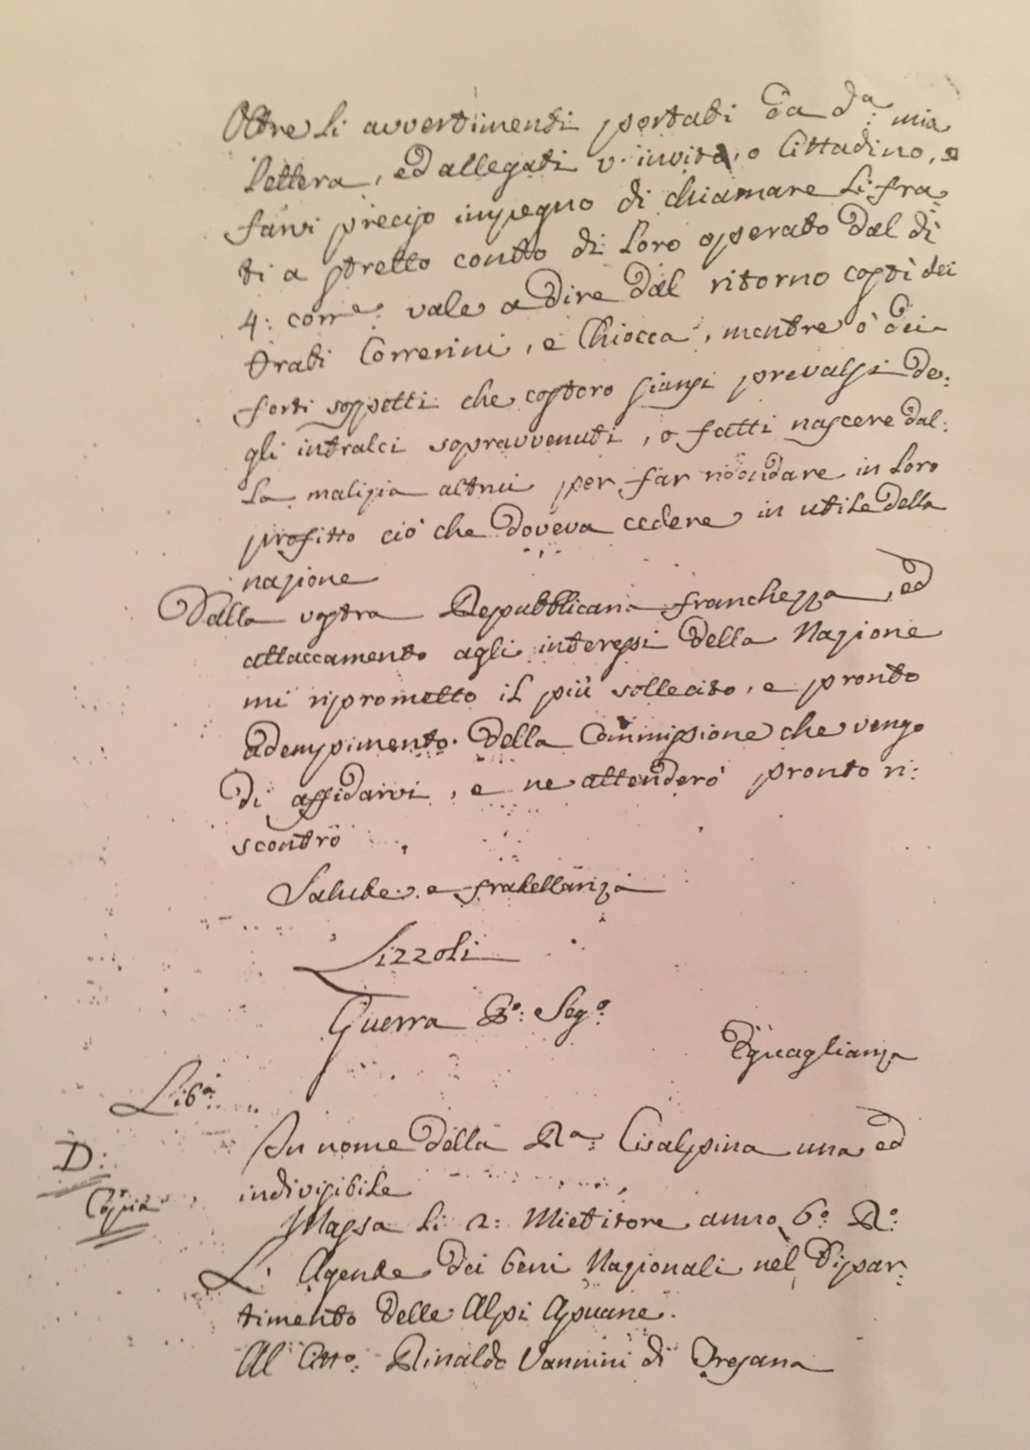 Oltre li avvertimenti portati da d.ª mia
lettera, ed allegati v'invito, o Cittadino, a
farvi preciso impegno di chiamare li fra
ti a stretto conto di loro operato dal dì
4: corr.e vale a dire dal ritorno costì dei
frati Correrini, e Chiocca, mentre ò dei
forti sospetti che costoro siansi prevalsi de:
gli intralci sopravvenuti, o fatti nascere dal:
la malizia altrui per far ridondare in loro
profitto ciò che doveva cedere in utile della
nazione
Dalla vostra Repubblicana franchezza, ed
attaccamento agli interessi della Nazione
mi riprometto il più sollecito, e pronto
adempimento della Commissione che vengo
di affidarvi, e ne attenderò pronto ri:
scontro
Salute e fratellanza
Lizzoli
Guerra P.º Seg.º
Eguaglianza
Lib.ª
In nome della R.ª Cisalpina una ed
indivisibile
D:
Copia
Massa li 2: Mietitore anno 6.º R.º
L' Agente dei beni Nazionali nel Dipar:
timento delle Alpi Apuane.
Al Citt.º Rinaldo Vannini di Oresana